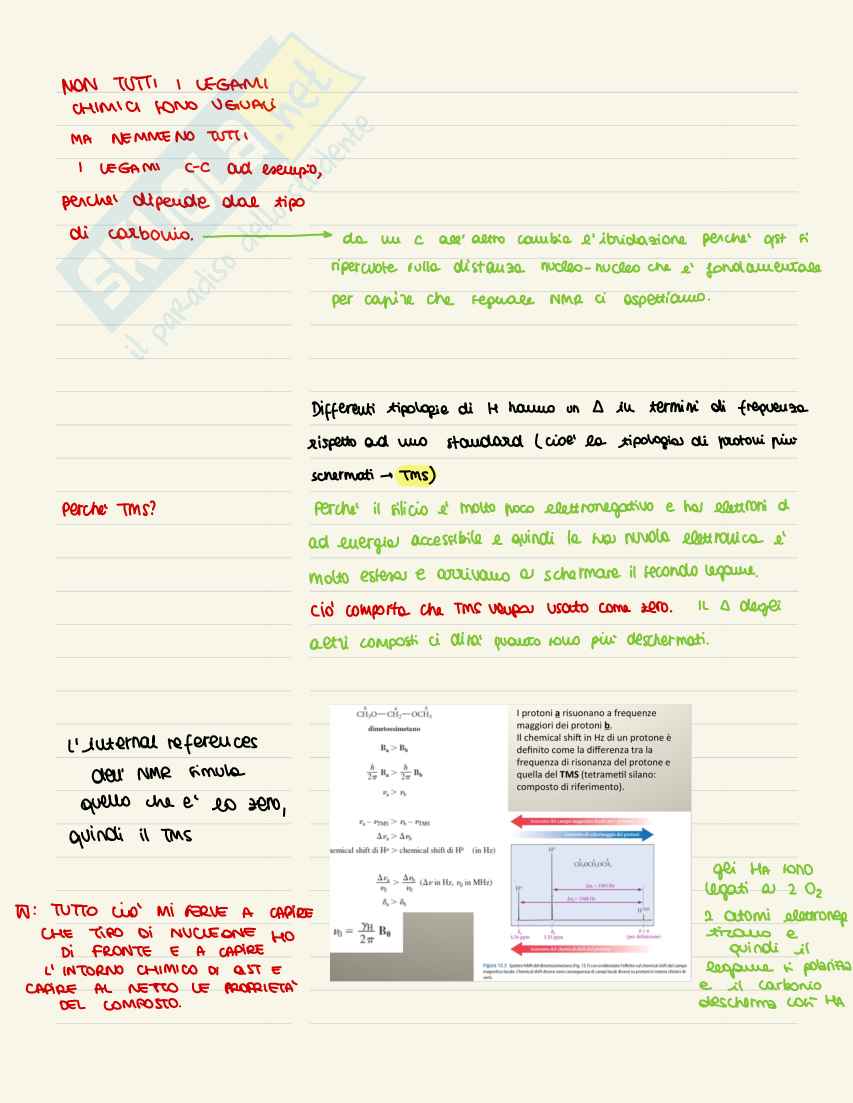 NON TUTTI I LEGAMI
CHIMICI SONO UGUALI
MA NEMMENO TUTTI
I LEGAMI C-C ad esempio,
perche' dipende dal tipo
di carbonio.
da un C all'altro cambia l'ibridazione perche' qst si
ripercuote sulla distanza nucleo-nucleo che e' fondamentale
per capire che segnale NMR ci aspettiamo.
SKUOLA.net
il paradiso dello studente
Differenti tipologie di H hanno un Δ in termini di frequenza
rispetto ad uno standard (cioe' la tipologia di protoni piu'
schermati → TMS)
Perche' TMS?
Perche' il silicio e' molto poco elettronegativo e ha elettroni d
ad energia accessibile e quindi la sua nuvola elettronica e'
molto estesa e arrivano a schermare il secondo legame.
Cio' comporta che TMS venga usato come zero. IL Δ degli
altri composti ci dira' quanto sono piu' deschermati.
L'internal references
dell' NMR simula
quello che e' lo zero,
quindi il TMS
a b a
CH₃O—CH₂—OCH₃
dimetossimetano
Bₐ > B_b
ℏ/2π Bₐ > ℏ/2π B_b
νₐ > ν_b
νₐ − ν_TMS > ν_b − ν_TMS
Δνₐ > Δν_b
emical shift di Hᵃ > chemical shift di Hᵇ (in Hz)
Δνₐ/ν₀ > Δν_b/ν₀ (Δν in Hz, ν₀ in MHz)
δₐ > δ_b
ν₀ = γH/2π B₀
I protoni a risuonano a frequenze
maggiori dei protoni b.
Il chemical shift in Hz di un protone è
definito come la differenza tra la
frequenza di risonanza del protone e
quella del TMS (tetrametil silano:
composto di riferimento).
gli Ha sono
legati a 2 O₂
2 atomi elettroneg
tirano e
quindi il
legame si polarizza
e il carbonio
descherma così Ha
N: TUTTO CIO' MI SERVE A CAPIRE
CHE TIPO DI NUCLEONE HO
DI FRONTE E A CAPIRE
L'INTORNO CHIMICO DI QST E
CAPIRE AL NETTO LE PROPRIETA'
DEL COMPOSTO.